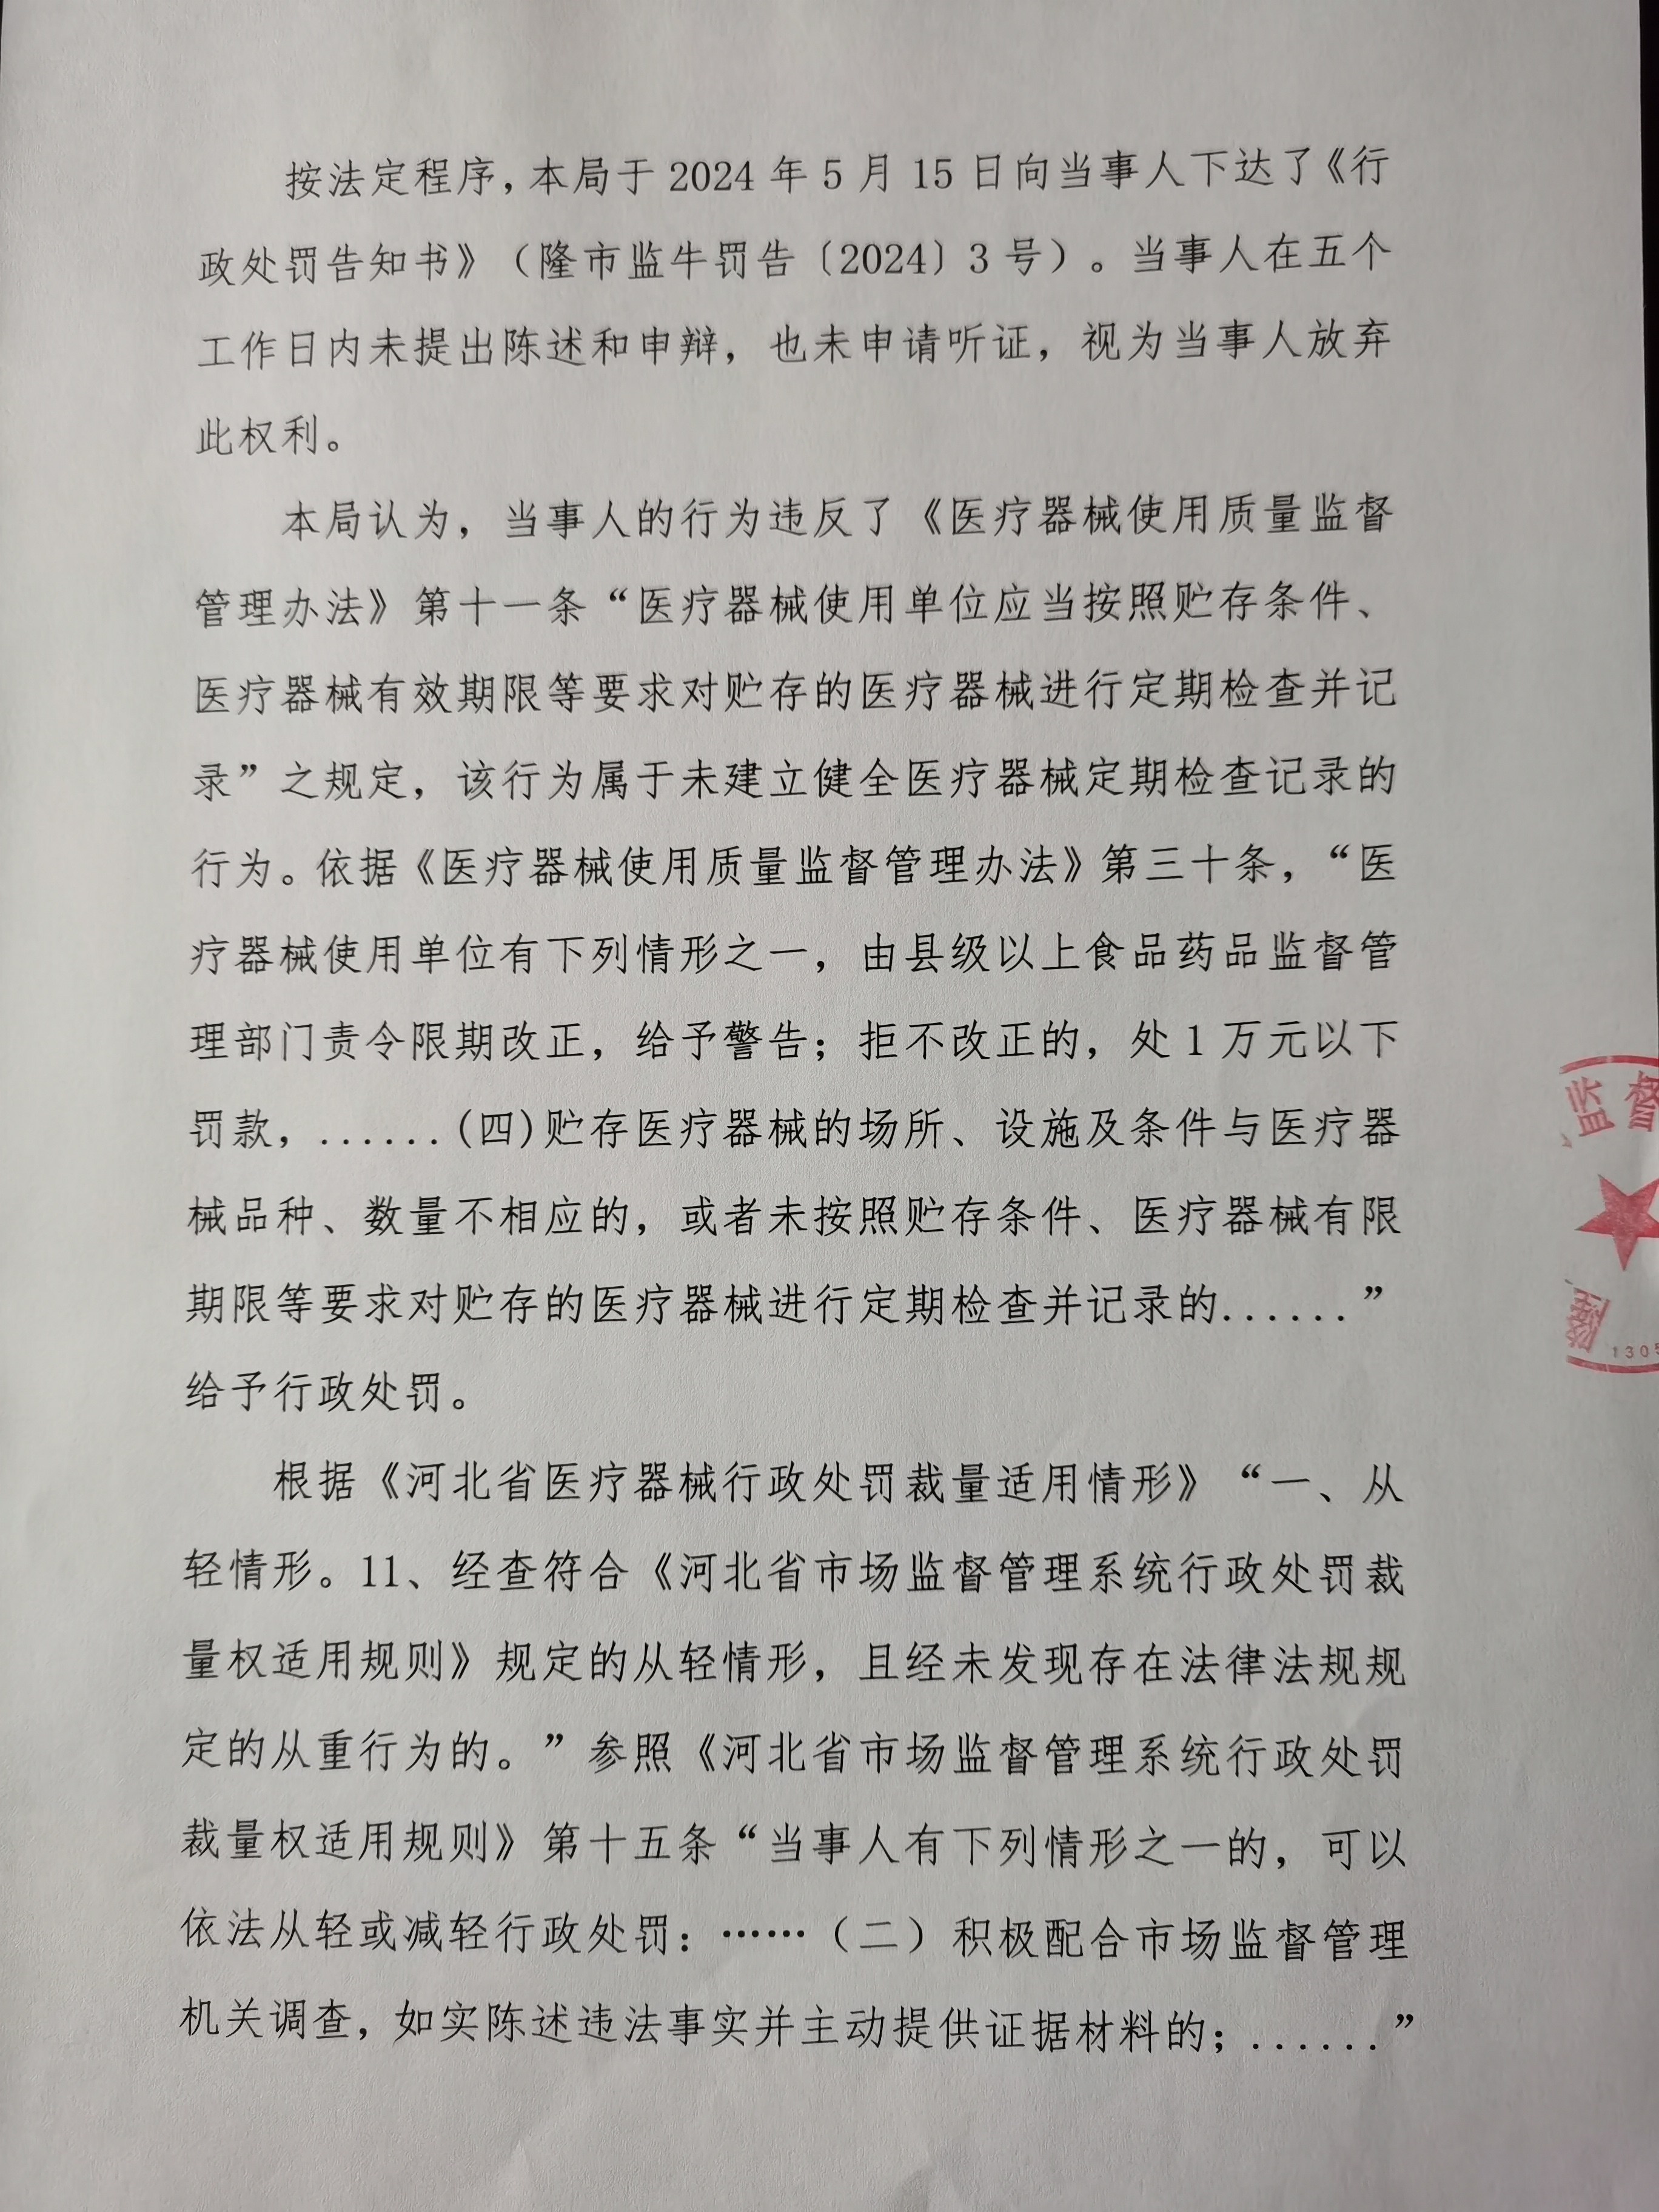 按法定程序，本局于 2024 年 5 月 15 日向当事人下达了《行
政处罚告知书》（隆市监牛罚告〔2024〕3 号）。当事人在五个
工作日内未提出陈述和申辩，也未申请听证，视为当事人放弃
此权利。
本局认为，当事人的行为违反了《医疗器械使用质量监督
管理办法》第十一条“医疗器械使用单位应当按照贮存条件、
医疗器械有效期限等要求对贮存的医疗器械进行定期检查并记
录”之规定，该行为属于未建立健全医疗器械定期检查记录的
行为。依据《医疗器械使用质量监督管理办法》第三十条，“医
疗器械使用单位有下列情形之一，由县级以上食品药品监督管
理部门责令限期改正，给予警告；拒不改正的，处 1 万元以下
罚款，......(四)贮存医疗器械的场所、设施及条件与医疗器
械品种、数量不相应的，或者未按照贮存条件、医疗器械有限
期限等要求对贮存的医疗器械进行定期检查并记录的......”
给予行政处罚。
根据《河北省医疗器械行政处罚裁量适用情形》“一、从
轻情形。11、经查符合《河北省市场监督管理系统行政处罚裁
量权适用规则》规定的从轻情形，且经未发现存在法律法规规
定的从重行为的。”参照《河北省市场监督管理系统行政处罚
裁量权适用规则》第十五条“当事人有下列情形之一的，可以
依法从轻或减轻行政处罚：……（二）积极配合市场监督管理
机关调查，如实陈述违法事实并主动提供证据材料的；......”
监督
隆
1305